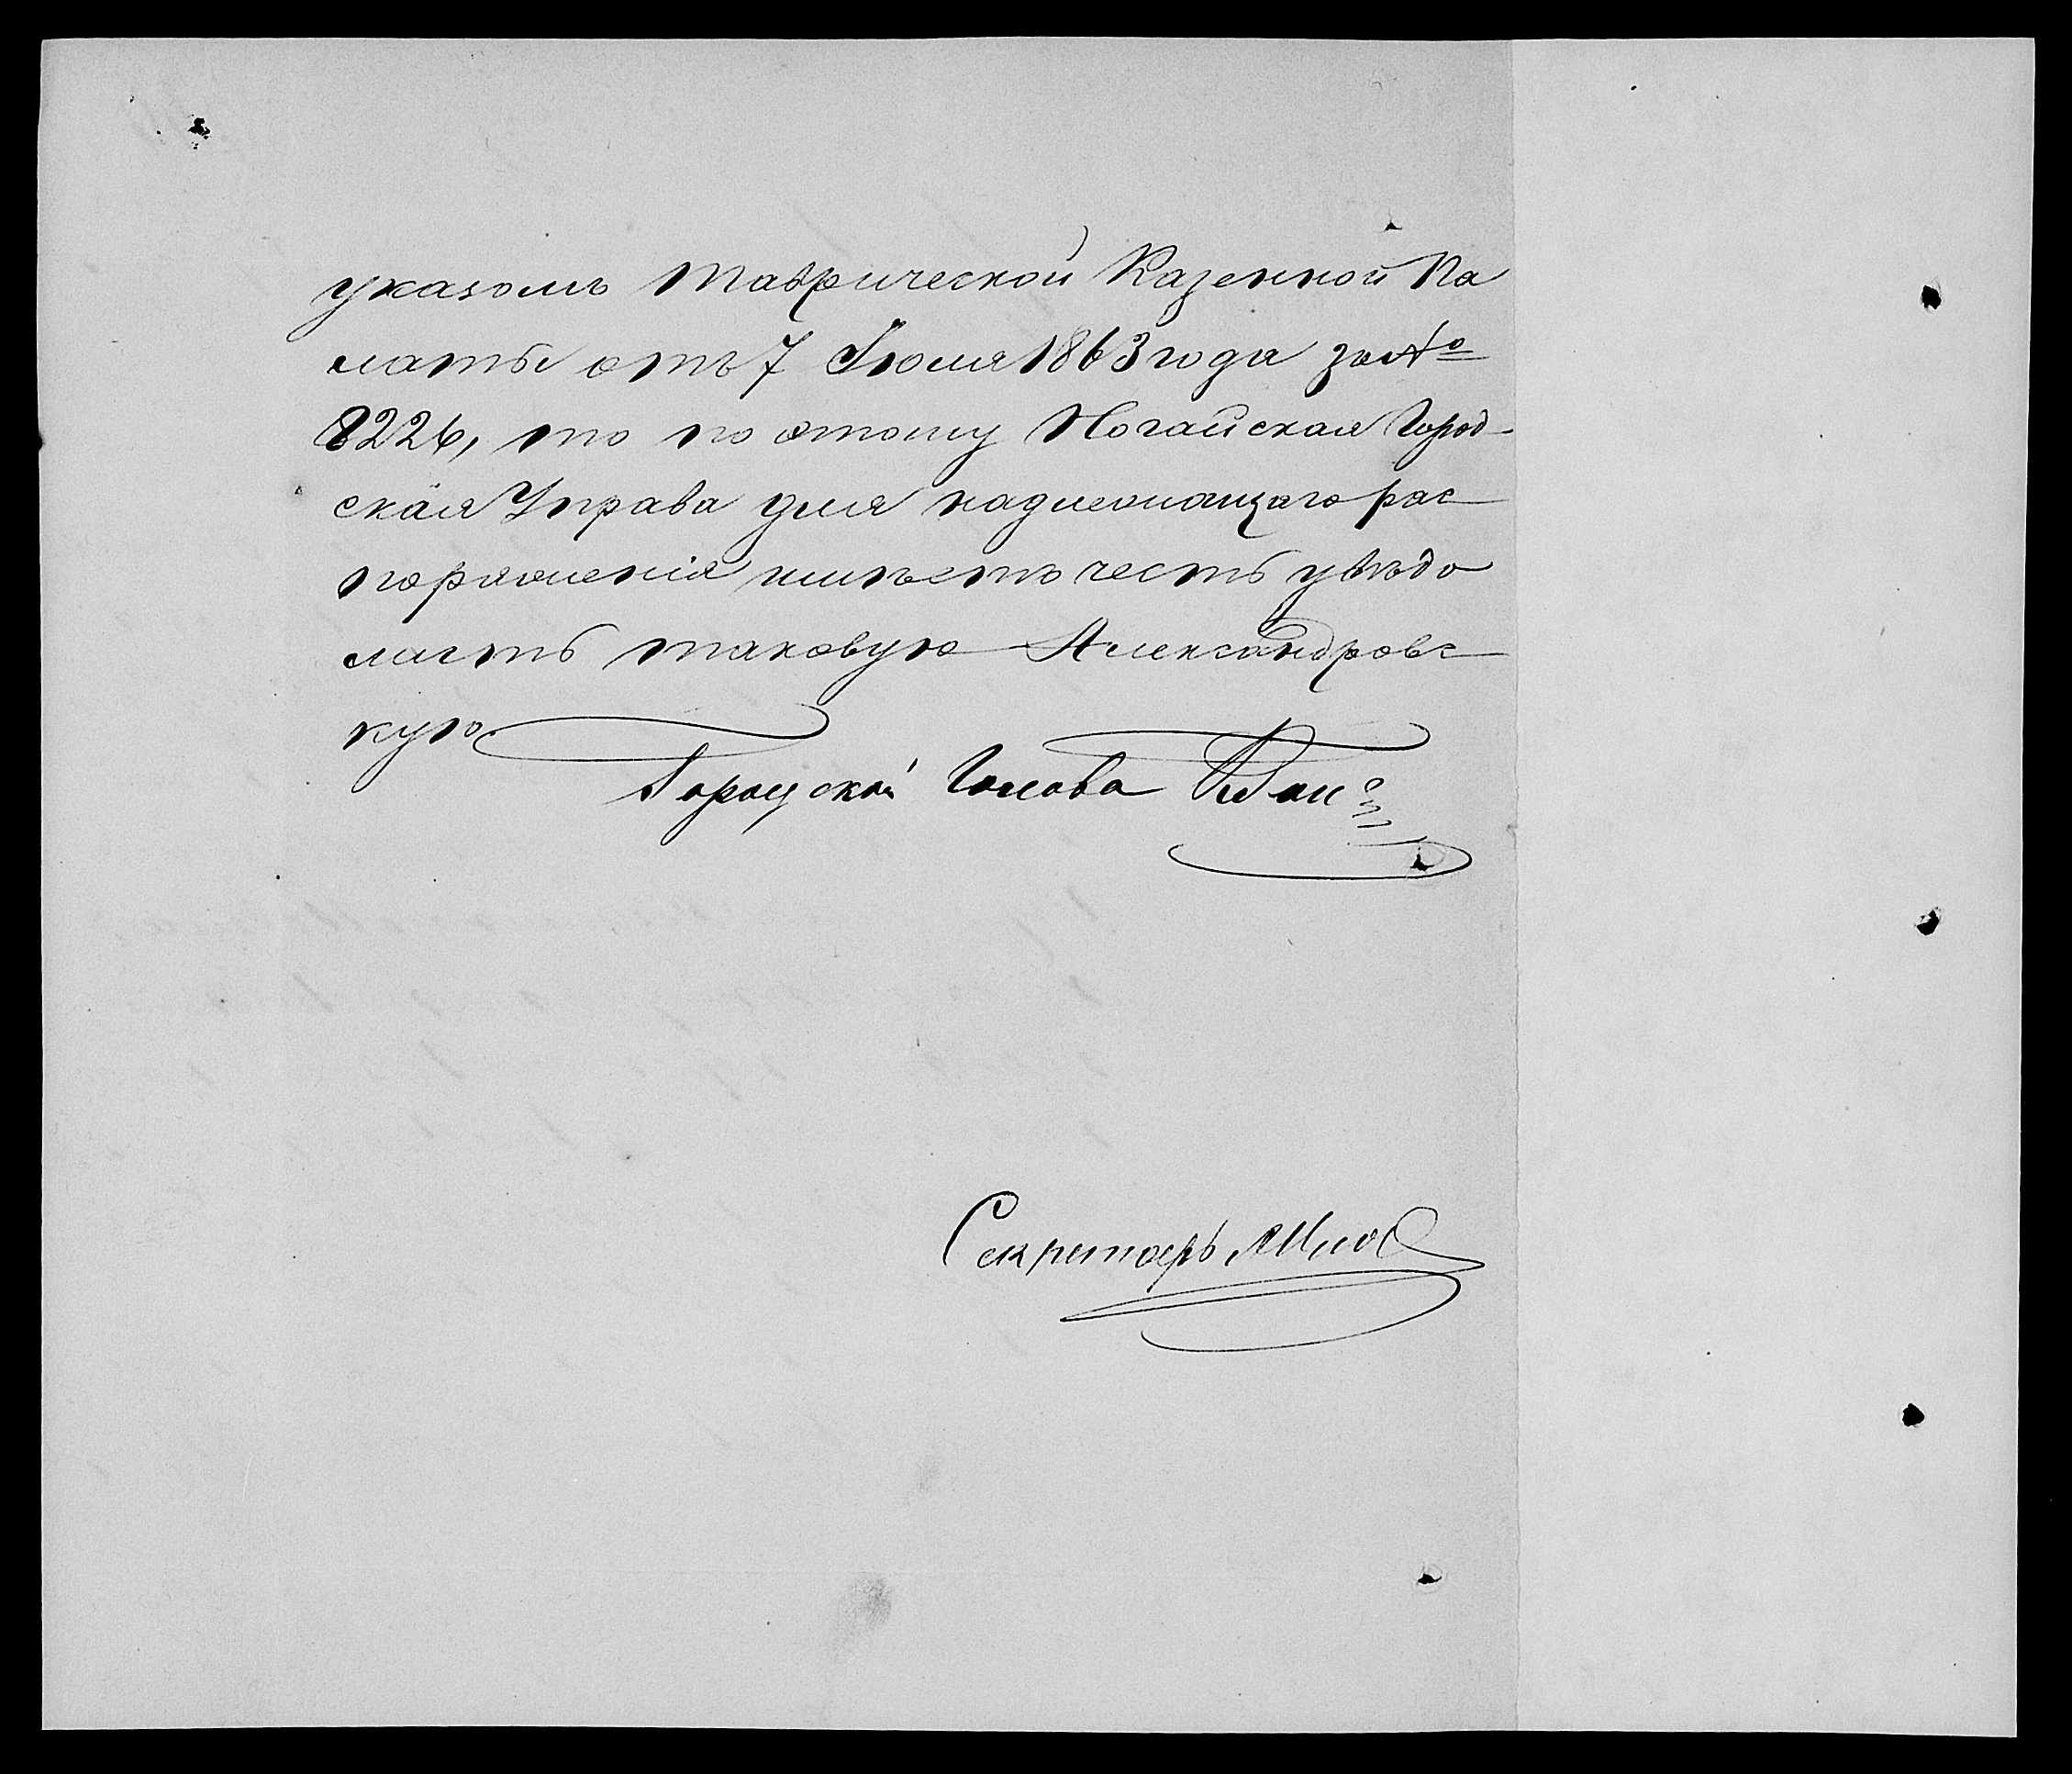 указомъ Таврической Казенной Па
латы отъ 7 Іюля 1863 года за №
8226, то по этому Ногайская Город-
ская Управа для надлежащаго рас
поряженія имѣетъ честь увѣдо
мить таковую Александровс
кую
Городской Голова
Секретарь